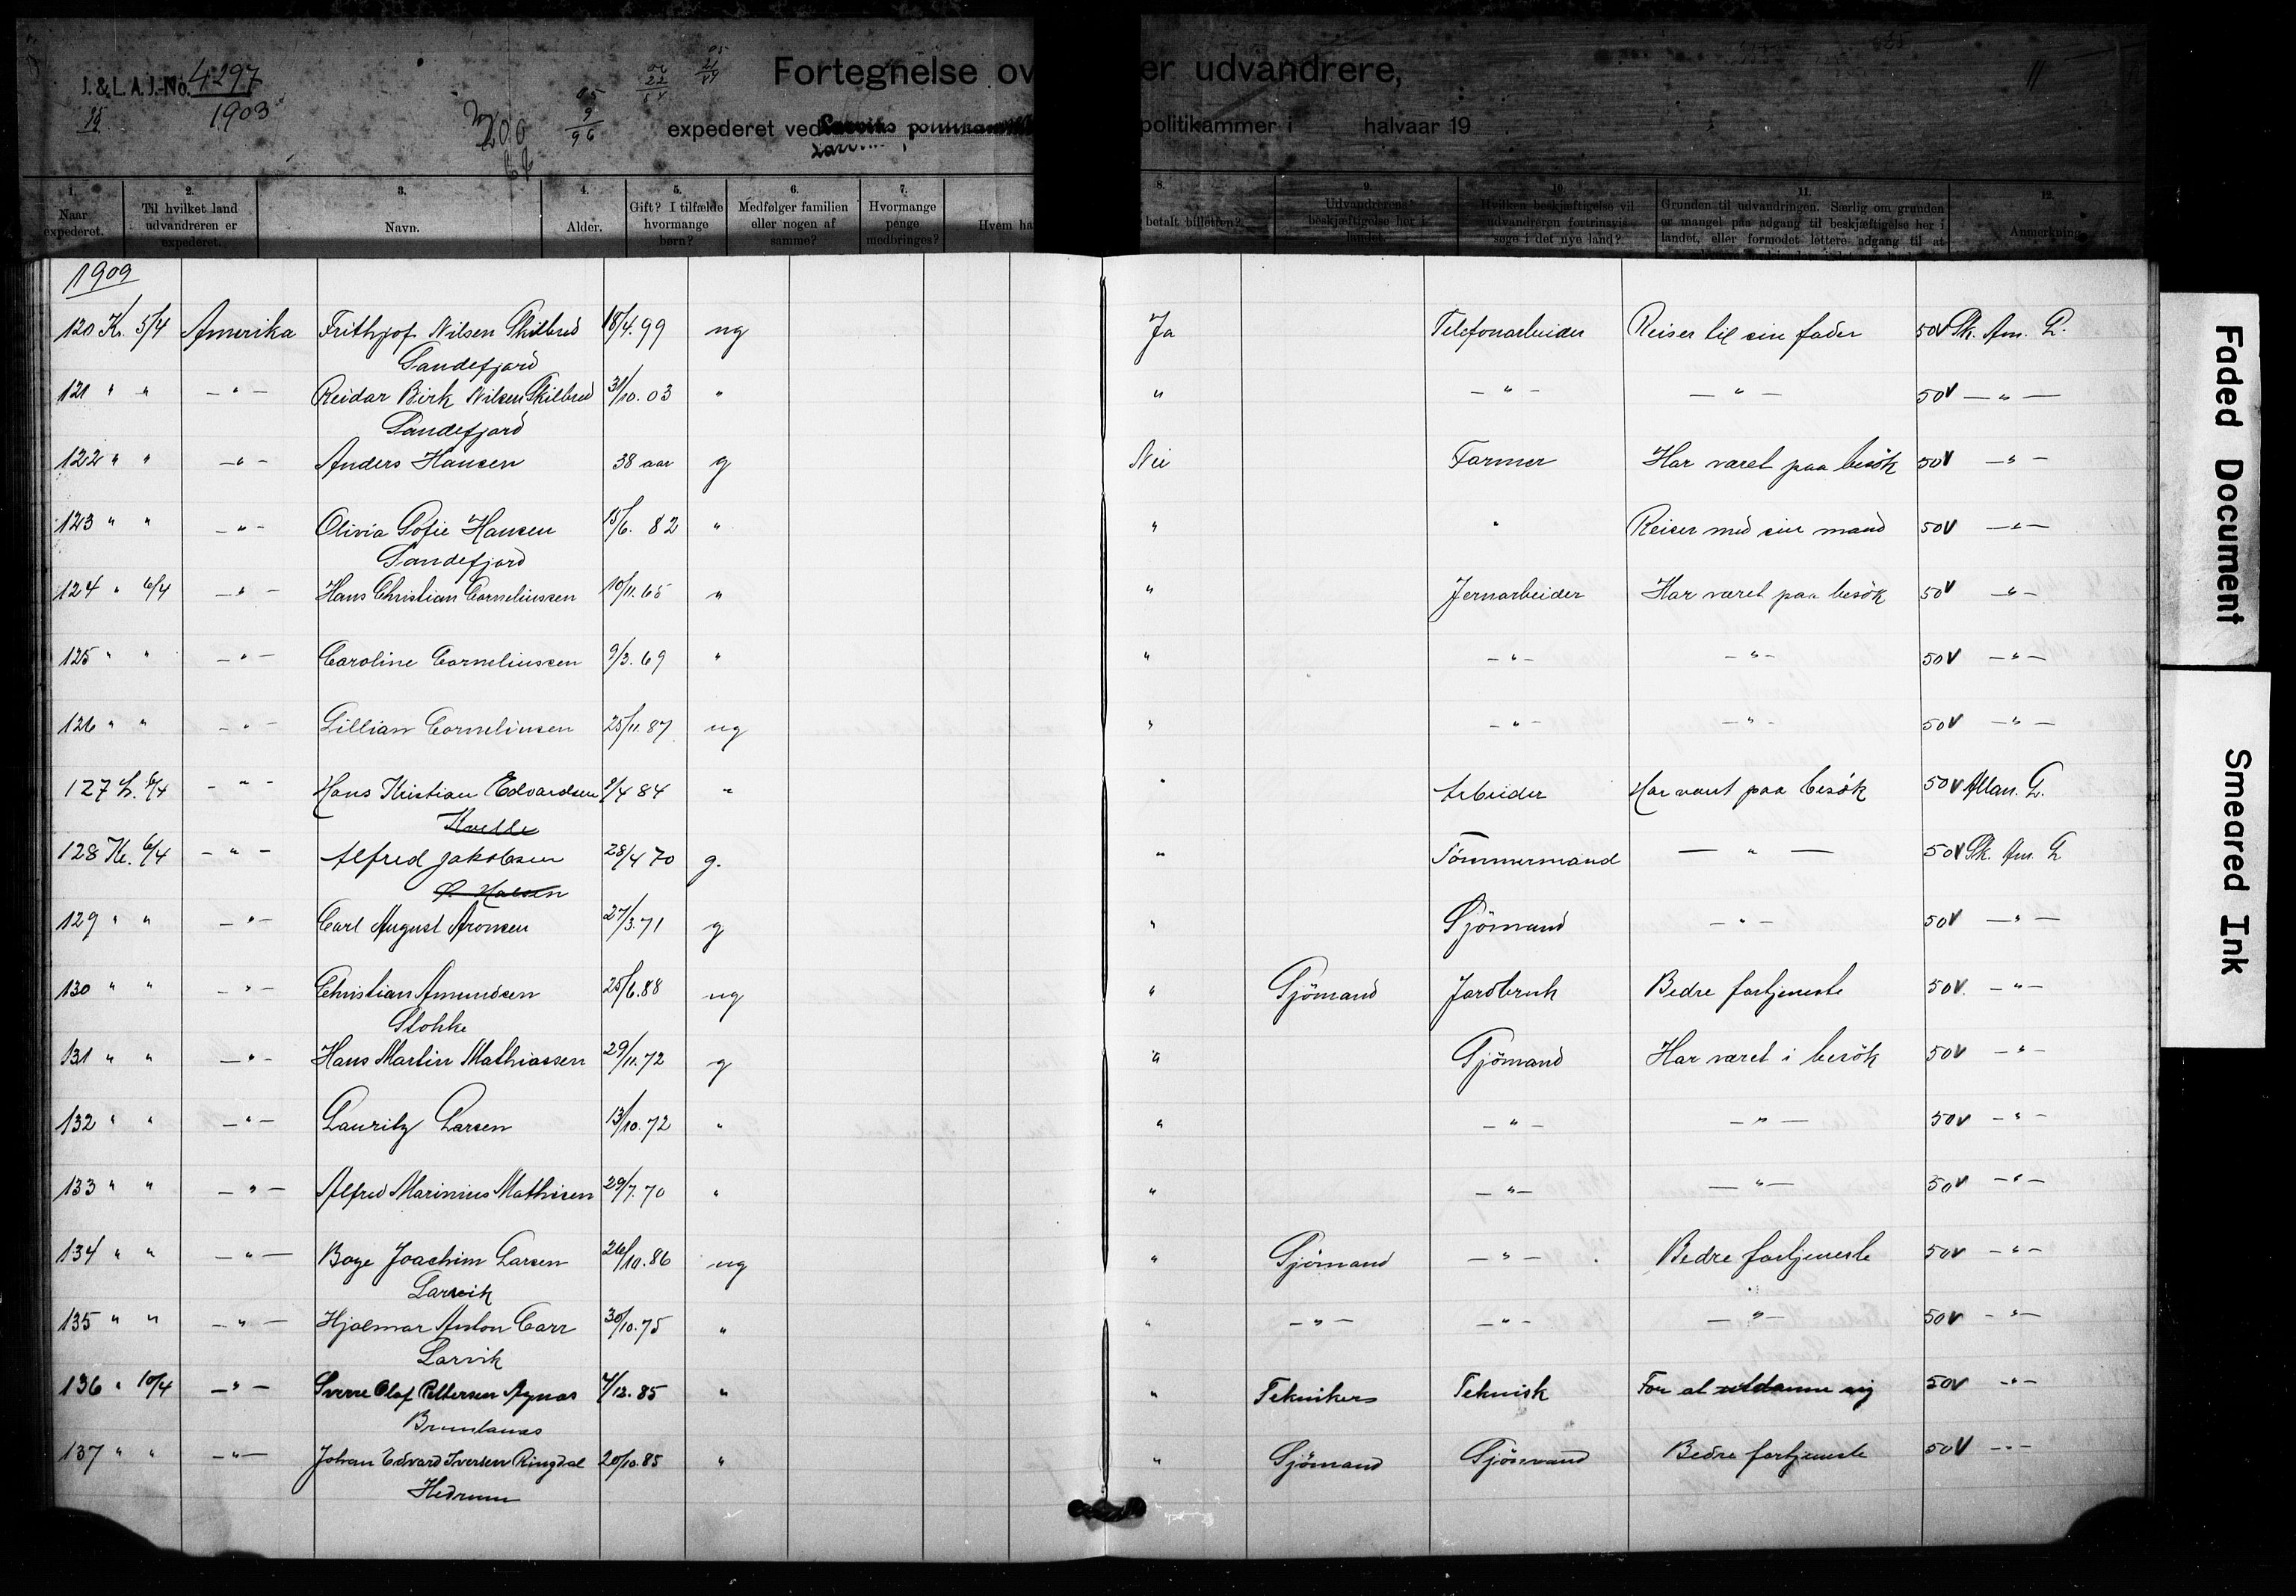 J. & L. A. J.-No. 4297
1903
200
Fortegnelse over udvandrere,
expederet ved politikammer i halvaar 19
1. Naar expederet.
2. Til hvilket land udvandreren er expederet.
3. Navn.
4. Alder.
5. Gift? I tilfælde hvormange børn?
6. Medfølger familien eller nogen af samme?
7. Hvormange penge medbringes?
8. Hvem ha betalt billetten?
9. Udvandrerens beskjæftigelse her i landet.
10. Hvilken beskjæftigelse vil udvandreren fortrinsvis søge i det nye land?
11. Grunden til udvandringen. Særlig om grunden er mangel paa adgang til beskjæftigelse her i landet, eller formodet lettere adgang til at
12. Anmerkning.
1909
120 Kr. 5/4 Amerika Frithjof Nilsen Skilbred 18/4.99 ug Ja Telefonarbeider Reiser til sin fader 50V Sk. Am. L.
Sandefjord
121 " " — " — Reidar Birk Nilsen Skilbred 31/10.03 " " — " — — " — 50V — " —
Sandefjord
122 " " — " — Anders Hansen 38 aar g Nei Farmer Har været paa besök 50V — " —
123 " " — " — Olivia Sofie Hansen 15/6. 82 " " " Reiser med sin mand 50V — " —
Sandefjord
124 " 6/4 — " — Hans Christian Corneliussen 10/11.65 " " Jernarbeider Har været paa besök 50V — " —
125 " " — " — Caroline Corneliussen 9/3.69 " " — " — — " — 50V — " —
126 " " — " — Lillian Corneliussen 25/11.87 ug " — " — — " — 50V — " —
127 L. 6/4 — " — Hans Kristian Edvardsen 2/4 84 " " Arbeider Har været paa besök 50V Allan. L.
Kvelle
128 Kr. 6/4 — " — Alfred Jakobsen 28/4 70 g. " Tömmermand — " — 50V Sk. Am. L
129 " " — " — Carl August Aronsen 27/3.71 g " Sjömand — " — 50V — " —
130 " " — " — Christian Amundsen 25/6.88 ug " Sjömand Jordbruk Bedre fortjeneste 50V. — " —
Stokke
131 " " — " — Hans Martin Mathiassen 29/11.72 g " Sjömand Har været i besök 50V — " —
132 " " — " — Lauritz Larsen 13/10.72 " " — " — — " — 50V — " —
133 " " — " — Alfred Marinius Mathisen 29/7.70 " " — " — — " — 50V — " —
134 " " — " — Boye Joachim Larsen 26/10.86 ug " Sjömand — " — Bedre fortjeneste 50V — " —
Larvik
135 " " — " — Hjalmar Anton Carr 30/10.75 " " — " — — " — — " — 50V — " —
Larvik
136 " 10/4 — " — Sverre Olaf Pettersen Agnas 4/12.85 " " Tekniker Teknisk For at utdanne sig 50V — " —
Brunlanes
137 " " — " — Johan Edvard Iversen Ringdal 20/10.85 " " Sjömand Sjömand Bedre fortjeneste 50V — " —
Hedrum
Faded Document
Smeared Ink